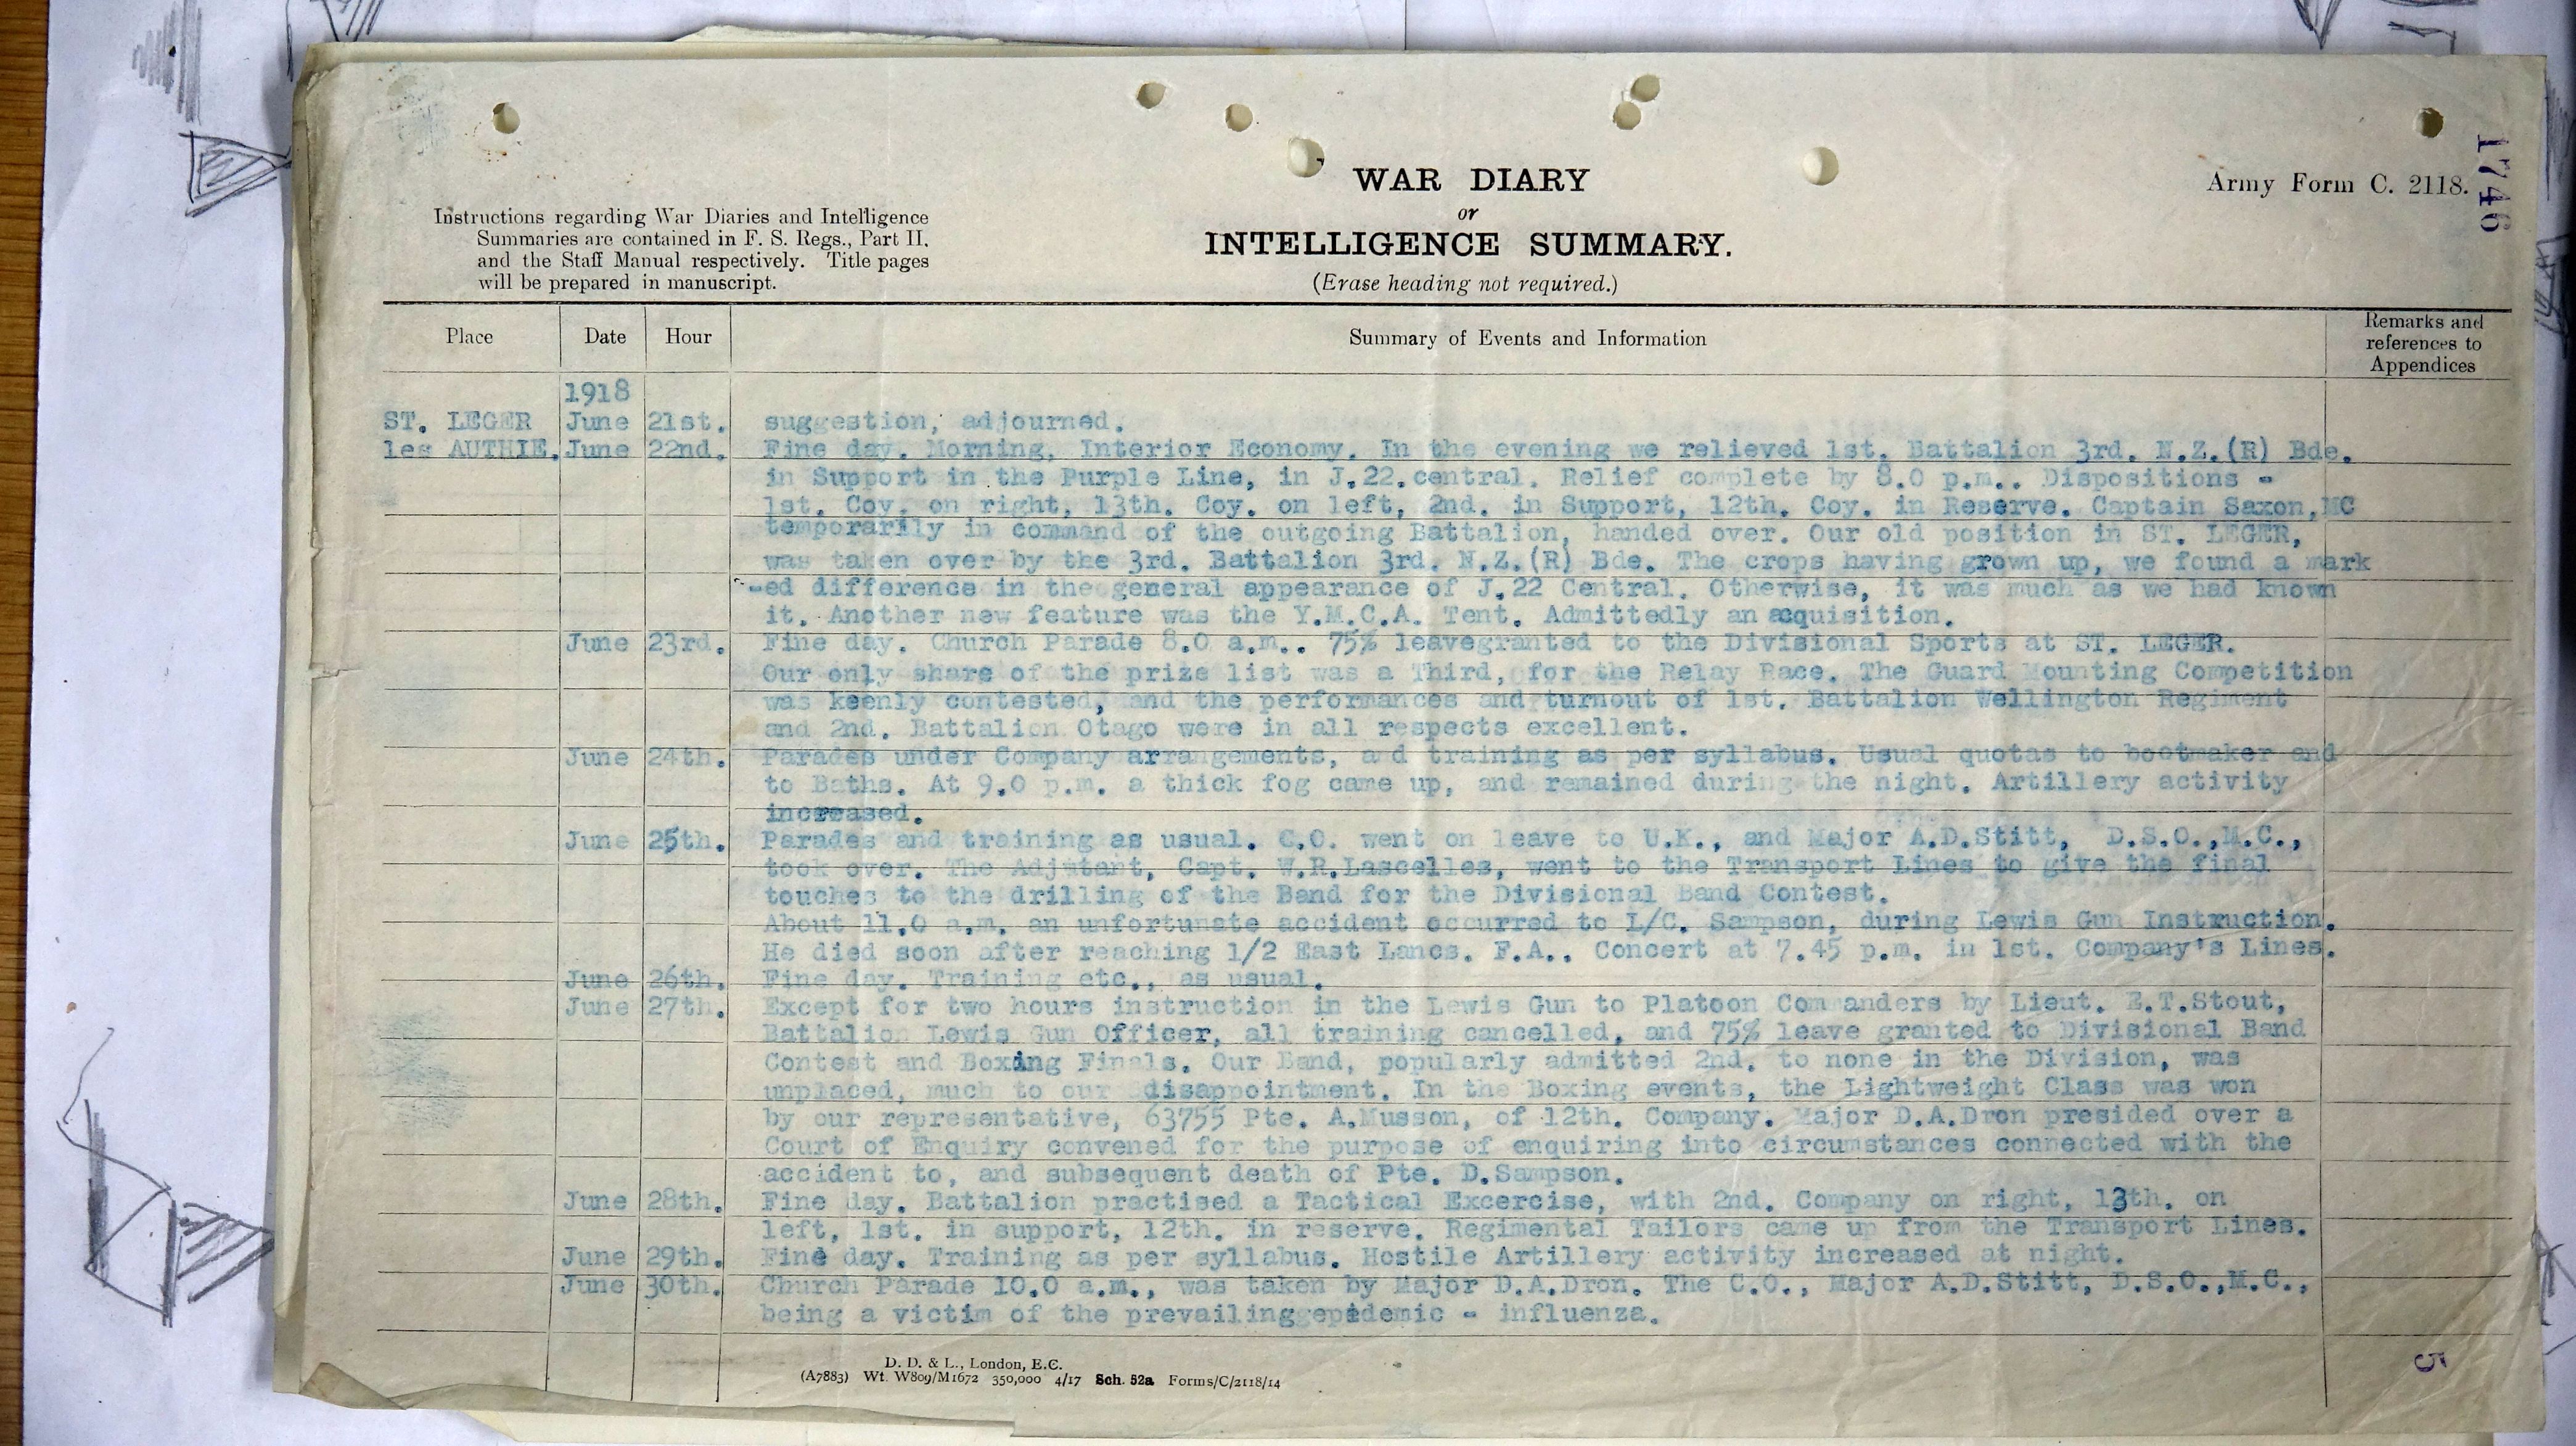 WAR DIARY
or
INTELLIGENCE SUMMARY.
(Erase heading not required.)
Army Form C. 2118.
1746
Instructions regarding War Diaries and Intelligence
Summaries are contained in F. S. Regs., Part II.
and the Staff Manual respectively. Title pages
will be prepared in manuscript.
Place Date Hour Summary of Events and Information Remarks and
references to
Appendices
1918
ST. LEGER June 21st. suggestion, adjourned.
les AUTHIE. June 22nd. Fine day. Morning, Interior Economy. In the evening we relieved 1st. Battalion 3rd. N.Z.(R) Bde.
in Support in the Purple Line, in J.22.central. Relief complete by 8.0 p.m.. Dispositions -
1st. Coy. on right, 13th. Coy. on left, 2nd. in Support, 12th. Coy. in Reserve. Captain Saxon,MC
temporarily in command of the outgoing Battalion, handed over. Our old position in ST. LEGER,
was taken over by the 3rd. Battalion 3rd. N.Z.(R) Bde. The crops having grown up, we found a mark
-ed difference in the general appearance of J.22 Central. Otherwise, it was much as we had known
it. Another new feature was the Y.M.C.A. Tent. Admittedly an acquisition.
June 23rd. Fine day. Church Parade 8.0 a.m.. 75% leavegranted to the Divisional Sports at ST. LEGER.
Our only share of the prize list was a Third, for the Relay Race. The Guard Mounting Competition
was keenly contested, and the performances and turnout of 1st. Battalion Wellington Regiment
and 2nd. Battalion Otago were in all respects excellent.
June 24th. Parades under Company arrangements, and training as per syllabus. Usual quotas to bootmaker and
to Baths. At 9.0 p.m. a thick fog came up, and remained during the night. Artillery activity
increased.
June 25th. Parades and training as usual. C.O. went on leave to U.K., and Major A.D.Stitt, D.S.O.,M.C.,
took over. The Adjutant, Capt. W.R.Lascelles, went to the Transport Lines to give the final
touches to the drilling of the Band for the Divisional Band Contest.
About 11.0 a.m. an unfortunate accident occurred to L/C. Sampson, during Lewis Gun Instruction.
He died soon after reaching 1/2 East Lancs. F.A.. Concert at 7.45 p.m. in 1st. Company's Lines.
June 26th. Fine day. Training etc., as usual.
June 27th. Except for two hours instruction in the Lewis Gun to Platoon Commanders by Lieut. E.T.Stout,
Battalion Lewis Gun Officer, all training cancelled, and 75% leave granted to Divisional Band
Contest and Boxing Finals. Our Band, popularly admitted 2nd. to none in the Division, was
unplaced, much to our disappointment. In the Boxing events, the Lightweight Class was won
by our representative, 63755 Pte. A.Musson, of 12th. Company. Major D.A.Dron presided over a
Court of Enquiry convened for the purpose of enquiring into circumstances connected with the
accident to, and subsequent death of Pte. D.Sampson.
June 28th. Fine day. Battalion practised a Tactical Excercise, with 2nd. Company on right, 13th. on
left, 1st. in support, 12th. in reserve. Regimental Tailors came up from the Transport Lines.
June 29th. Fine day. Training as per syllabus. Hostile Artillery activity increased at night.
June 30th. Church Parade 10.0 a.m., was taken by Major D.A.Dron. The C.O., Major A.D.Stitt, D.S.O.,M.C.,
being a victim of the prevailinggepidemic - influenza.
5
D. D. & L., London, E.C.
(A7883) Wt. W809/M1672 350,000 4/17 Sch. 52a Forms/C/2118/14